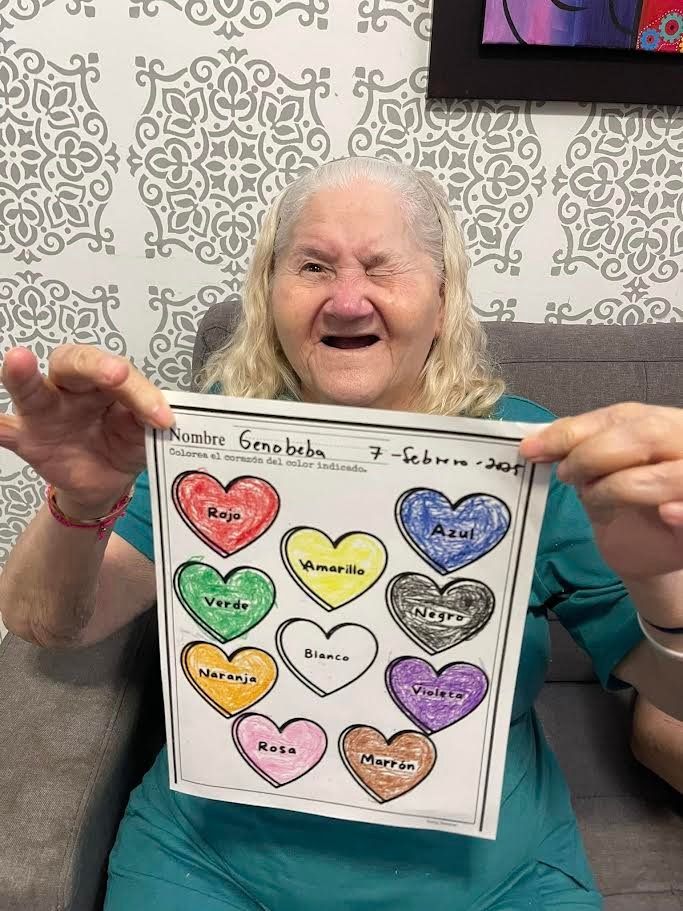 Nombre Genobeba 7-febrero-2025
Colorea el corazón del color indicado.
Rojo
Azul
Amarillo
Verde
Negro
Blanco
Naranja
Violeta
Rosa
Marrón